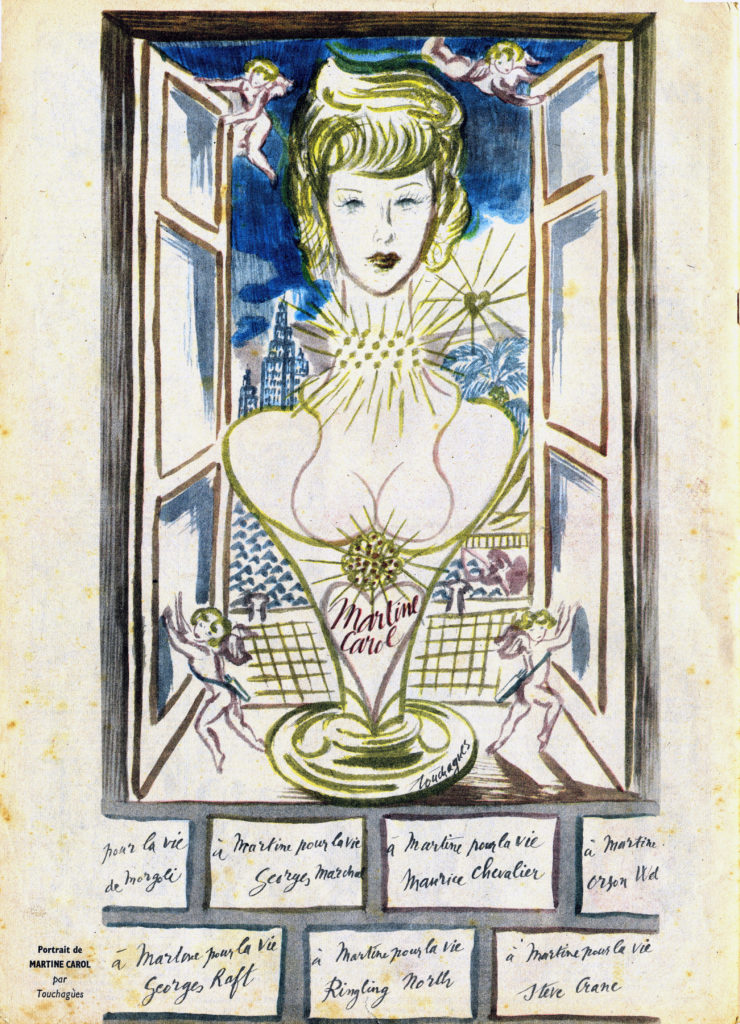 Martine
Carol
Touchagùes
pour la vie
de Morgoli
à Martine pour la vie
Georges Marcha
à Martine pour la vie
Maurice Chevalier
à Martine
Orson Wel
à Martine pour la vie
Georges Raft
à Martine pour la vie
Ringling North
à Martine pour la vie
Steve Crane
Portrait de
MARTINE CAROL
par
Touchagùes